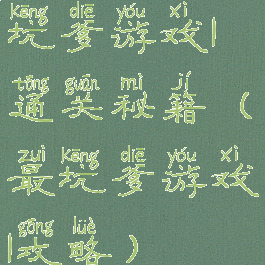 kēng diē yóu xì
坑爹游戏|
tōng guān mì jí
通关秘籍（
zuì kēng diē yóu xì
最坑爹游戏
gōng lüè
|攻略）